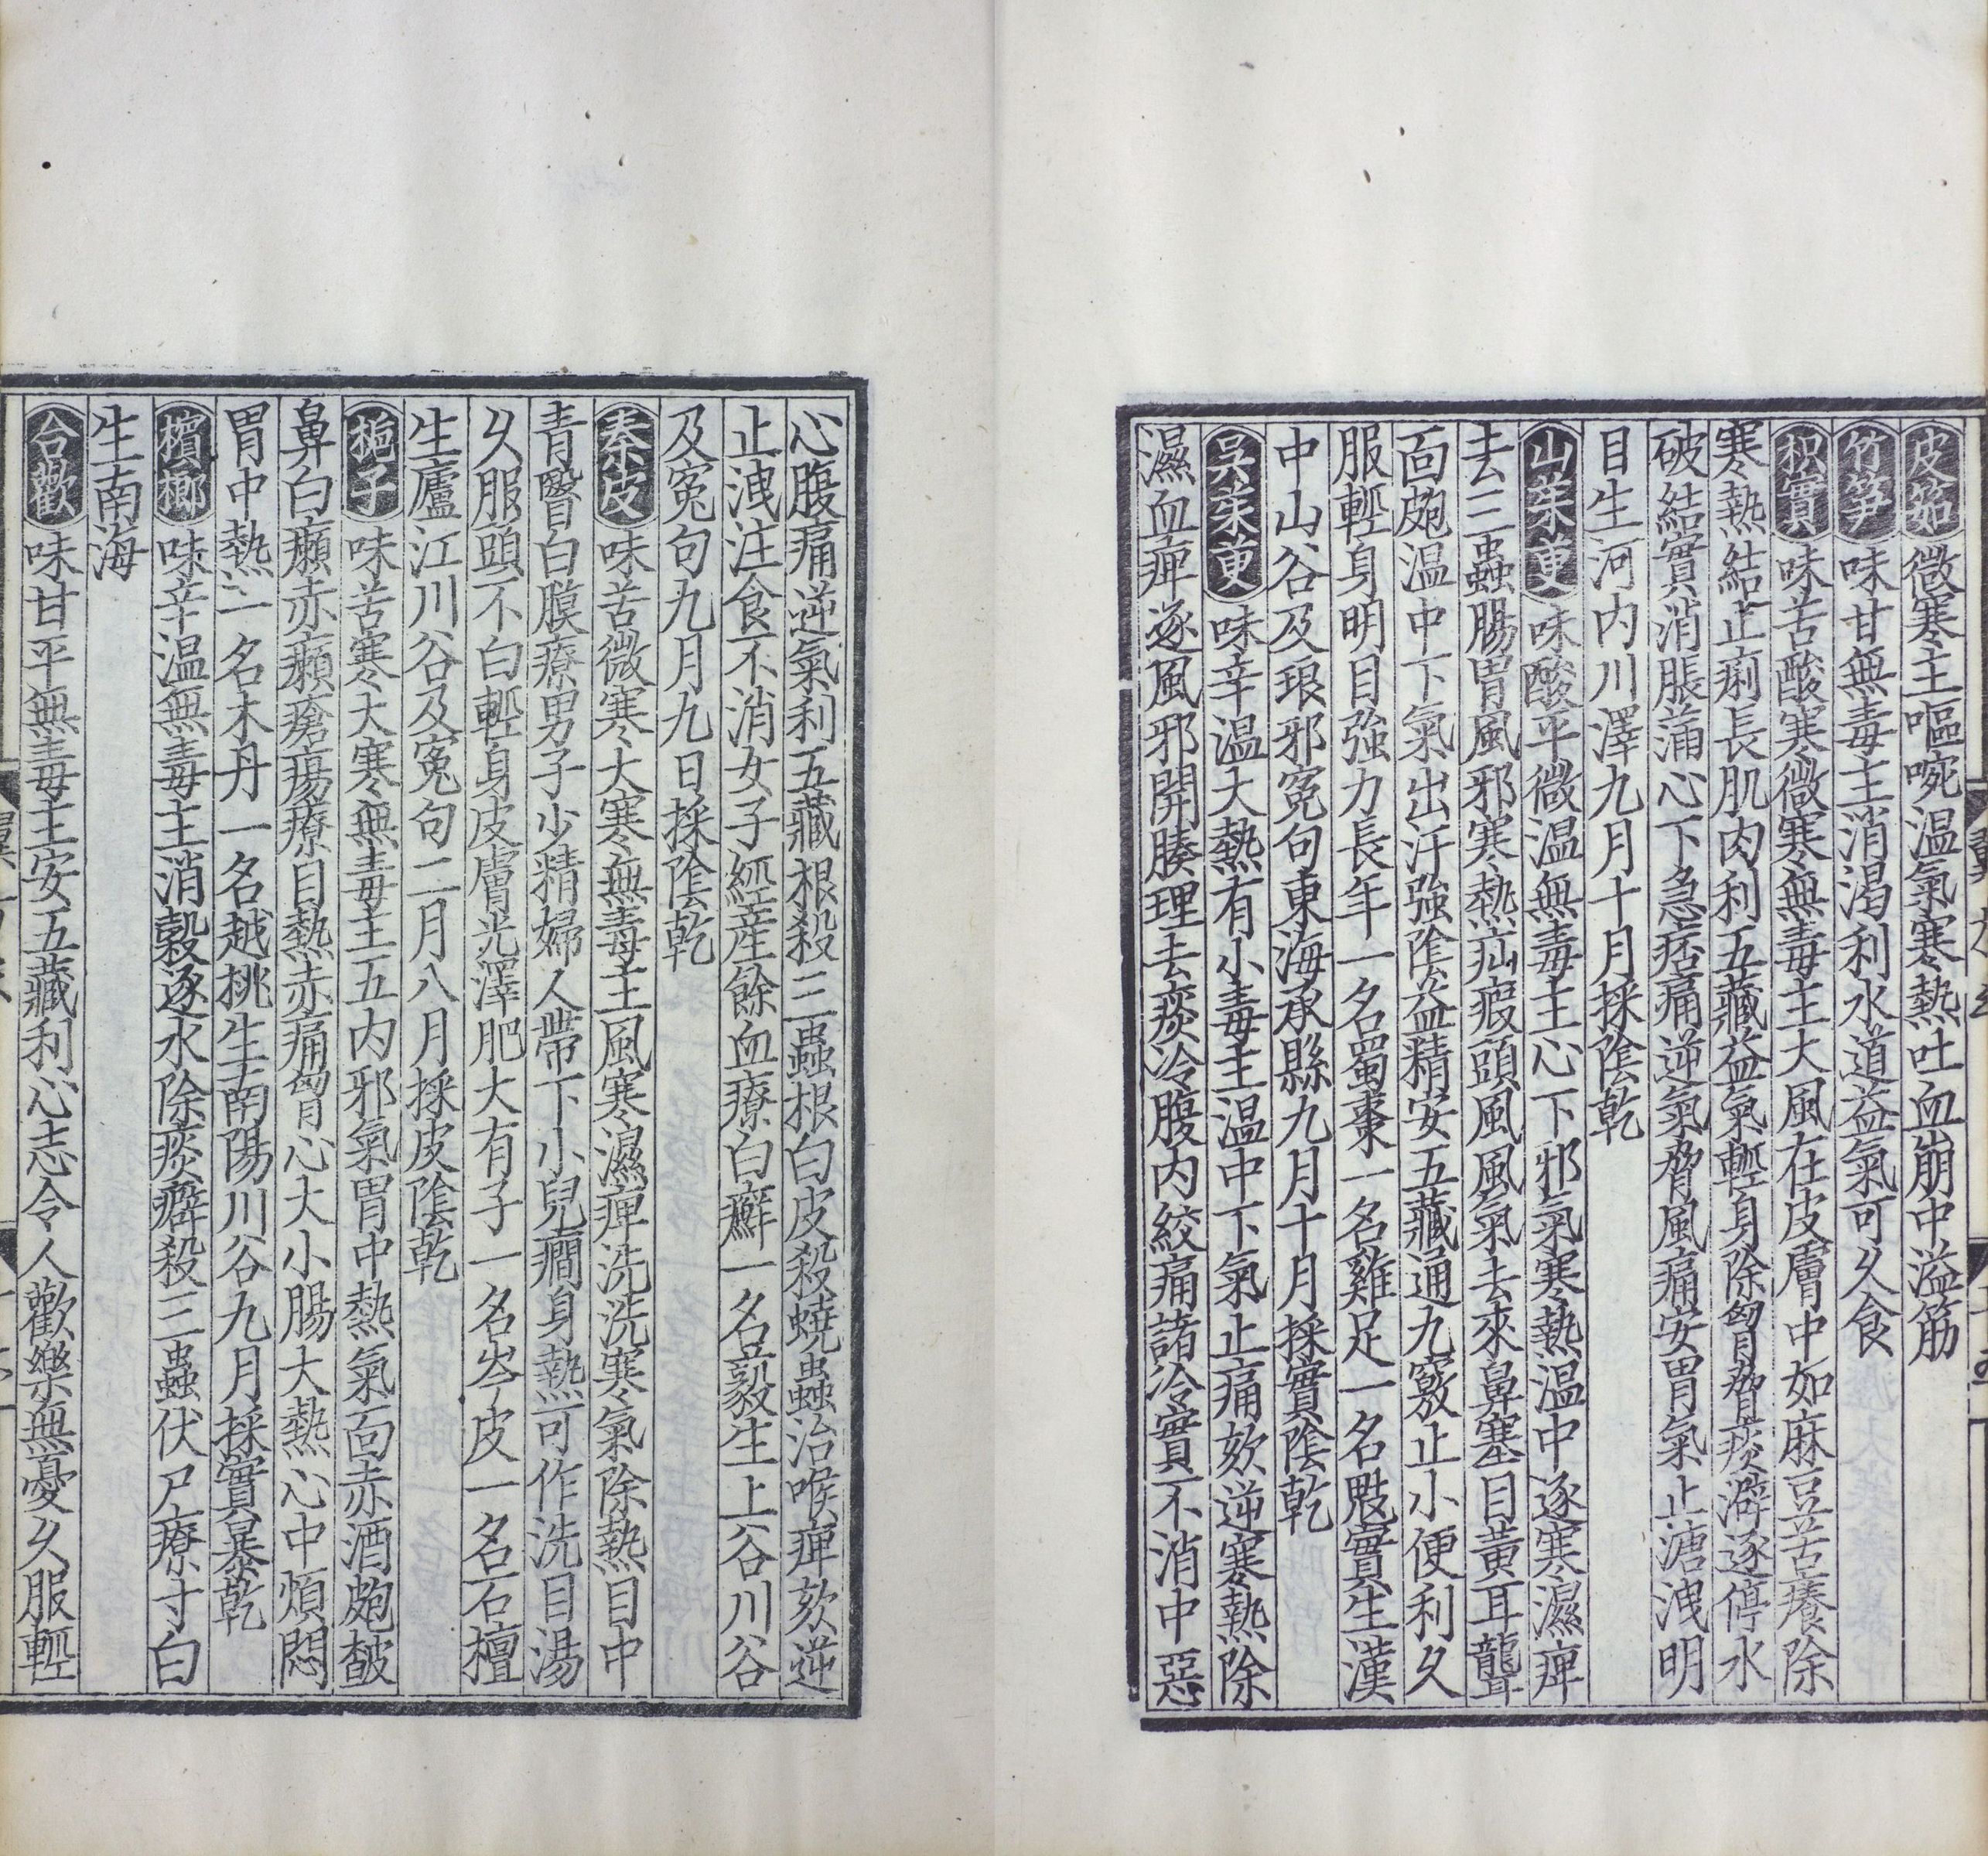 皮筎微寒主嘔啘温氣寒熱吐血崩中溢筋
竹笋味甘無毒主消渴利水道益氣可久食
枳實味苦酸寒微寒無毒主大風在皮膚中如麻豆苦癢除
寒熱結止痢長肌肉利五藏益氣輕身除胷脅痰澼逐停水
破結實消脹滿心下急痞痛逆氣脅風痛安胃氣止溏洩明
目生河内川澤九月十月採陰乾
山茱萸味酸平微温無毒主心下邪氣寒熱温中逐寒濕痺
去三蟲腸胃風邪寒熱疝瘕頭風風氣去來鼻塞目黄耳聾
面皰温中下氣出汗強陰益精安五藏通九竅止小便利久
服輕身明目強力長年一名蜀棗一名雞足一名鬾實生漢
中山谷及琅邪冤句東海承縣九月十月採實陰乾
吳茱萸味辛温大熱有小毒主温中下氣止痛欬逆寒熱除
濕血痺逐風邪開腠理去痰冷腹内絞痛諸冷實不消中惡
心腹痛逆氣利五藏根殺三蟲根白皮殺蟯蟲治喉痺欬逆
止洩注食不消女子經産餘血療白癬一名藙生上谷川谷
及冤句九月九日採陰乾
秦皮味苦微寒大寒無毒主風寒濕痺洗洗寒氣除熱目中
青翳白膜療男子少精婦人帶下小兒癇身熱可作洗目湯
久服頭不白輕身皮膚光澤肥大有子一名岑皮一名石檀
生廬江川谷及冤句二月八月採皮陰乾
梔子味苦寒大寒無毒主五内邪氣胃中熱氣面赤酒皰皶
鼻白癩赤癩瘡瘍療目熱赤痛胷心大小腸大熱心中煩悶
胃中熱一名木丹一名越桃生南陽川谷九月採實暴乾
檳榔味辛温無毒主消穀逐水除痰癖殺三蟲伏尸療寸白
生南海
合歡味甘平無毒主安五藏利心志令人歡樂無憂久服輕